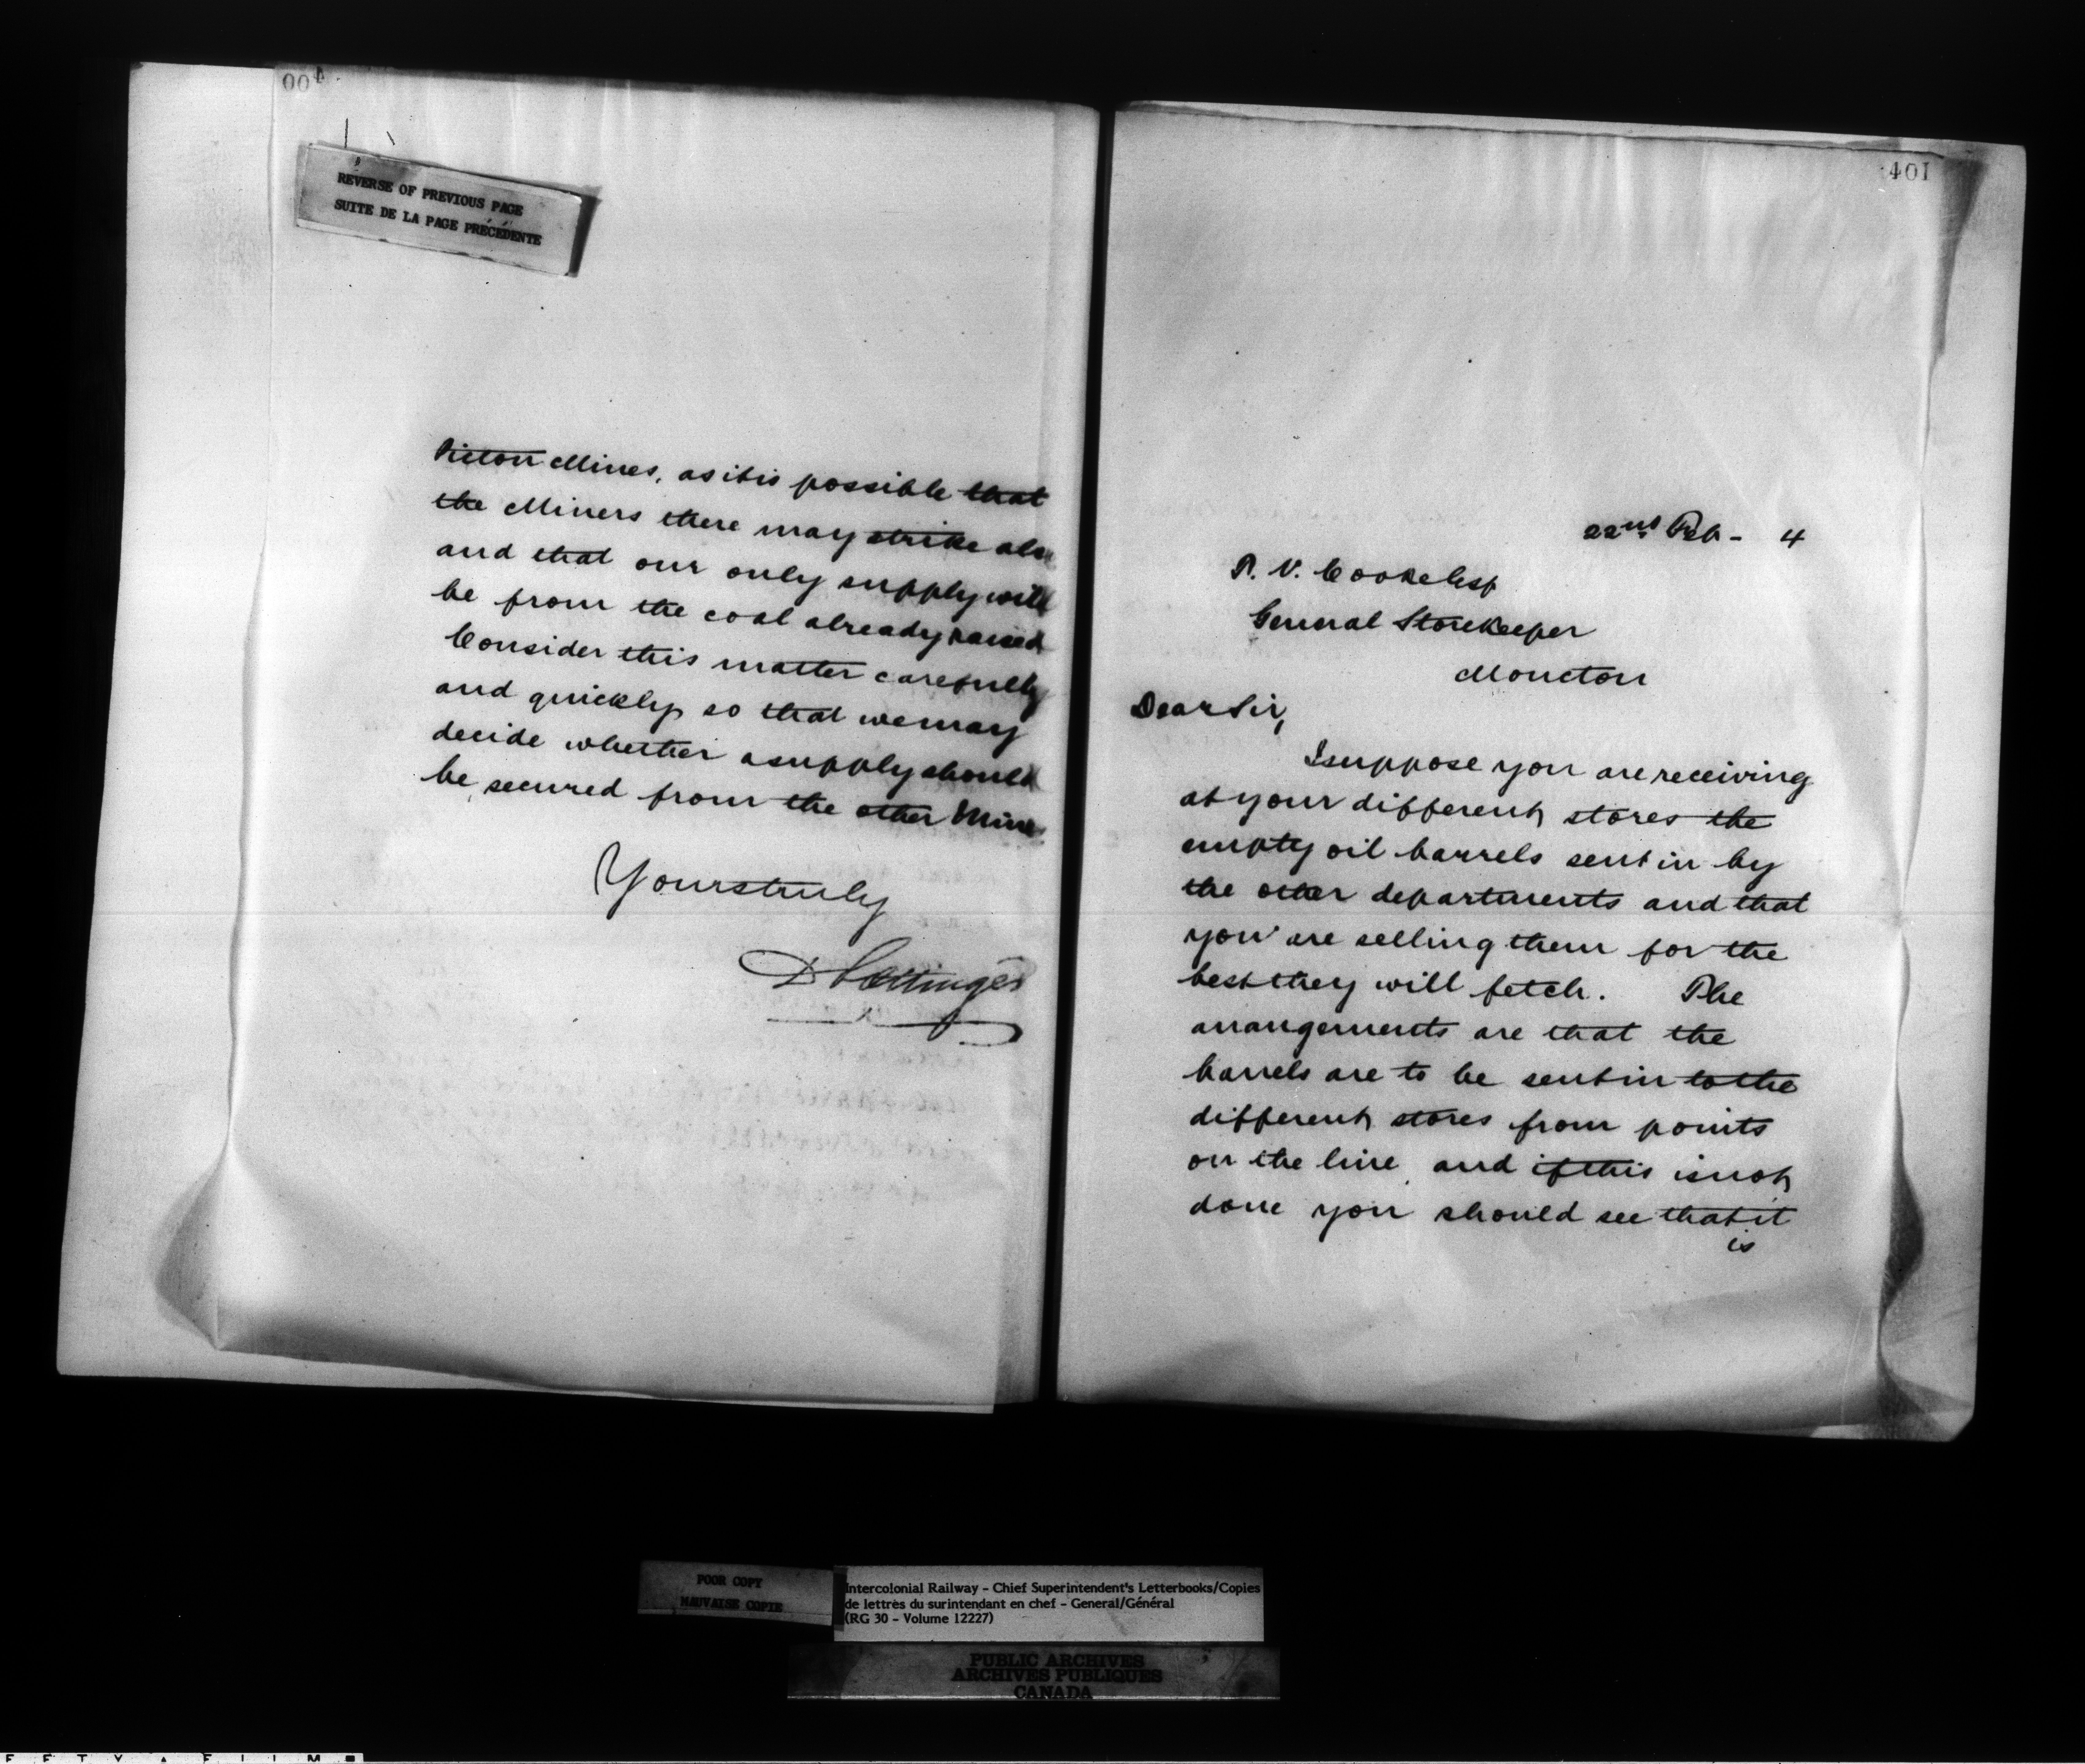 400
REVERSE OF PREVIOUS PAGE
SUITE DE LA PAGE PRÉCÉDENTE
Pictou Mines, as it is possible that
the Miners there may strike also
and that our only supply will
be from the coal already raised
Consider this matter carefully
and quickly so that we may
decide whether a supply should
be secured from the other Mines
Yours truly
D Pottinger
401
22nd Feb - 4
P. V. Cooke Esq
General Storekeeper
Moncton
Dear Sir,
I suppose you are receiving
at your different stores the
empty oil barrels sent in by
the other departments and that
you are selling them for the
best they will fetch. The
arrangements are that the
barrels are to be sent in to the
different stores from points
on the line and if this is not
done you should see that it
is
POOR COPY
MAUVAISE COPIE
Intercolonial Railway - Chief Superintendent's Letterbooks/Copies
de lettres du surintendant en chef - General/Général
(RG 30 - Volume 12227)
PUBLIC ARCHIVES
ARCHIVES PUBLIQUES
CANADA